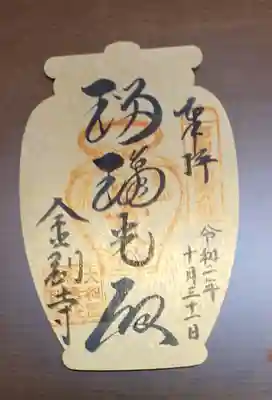 奉拝
令和二年
十月三十一日
瑠璃光殿
金剛寺